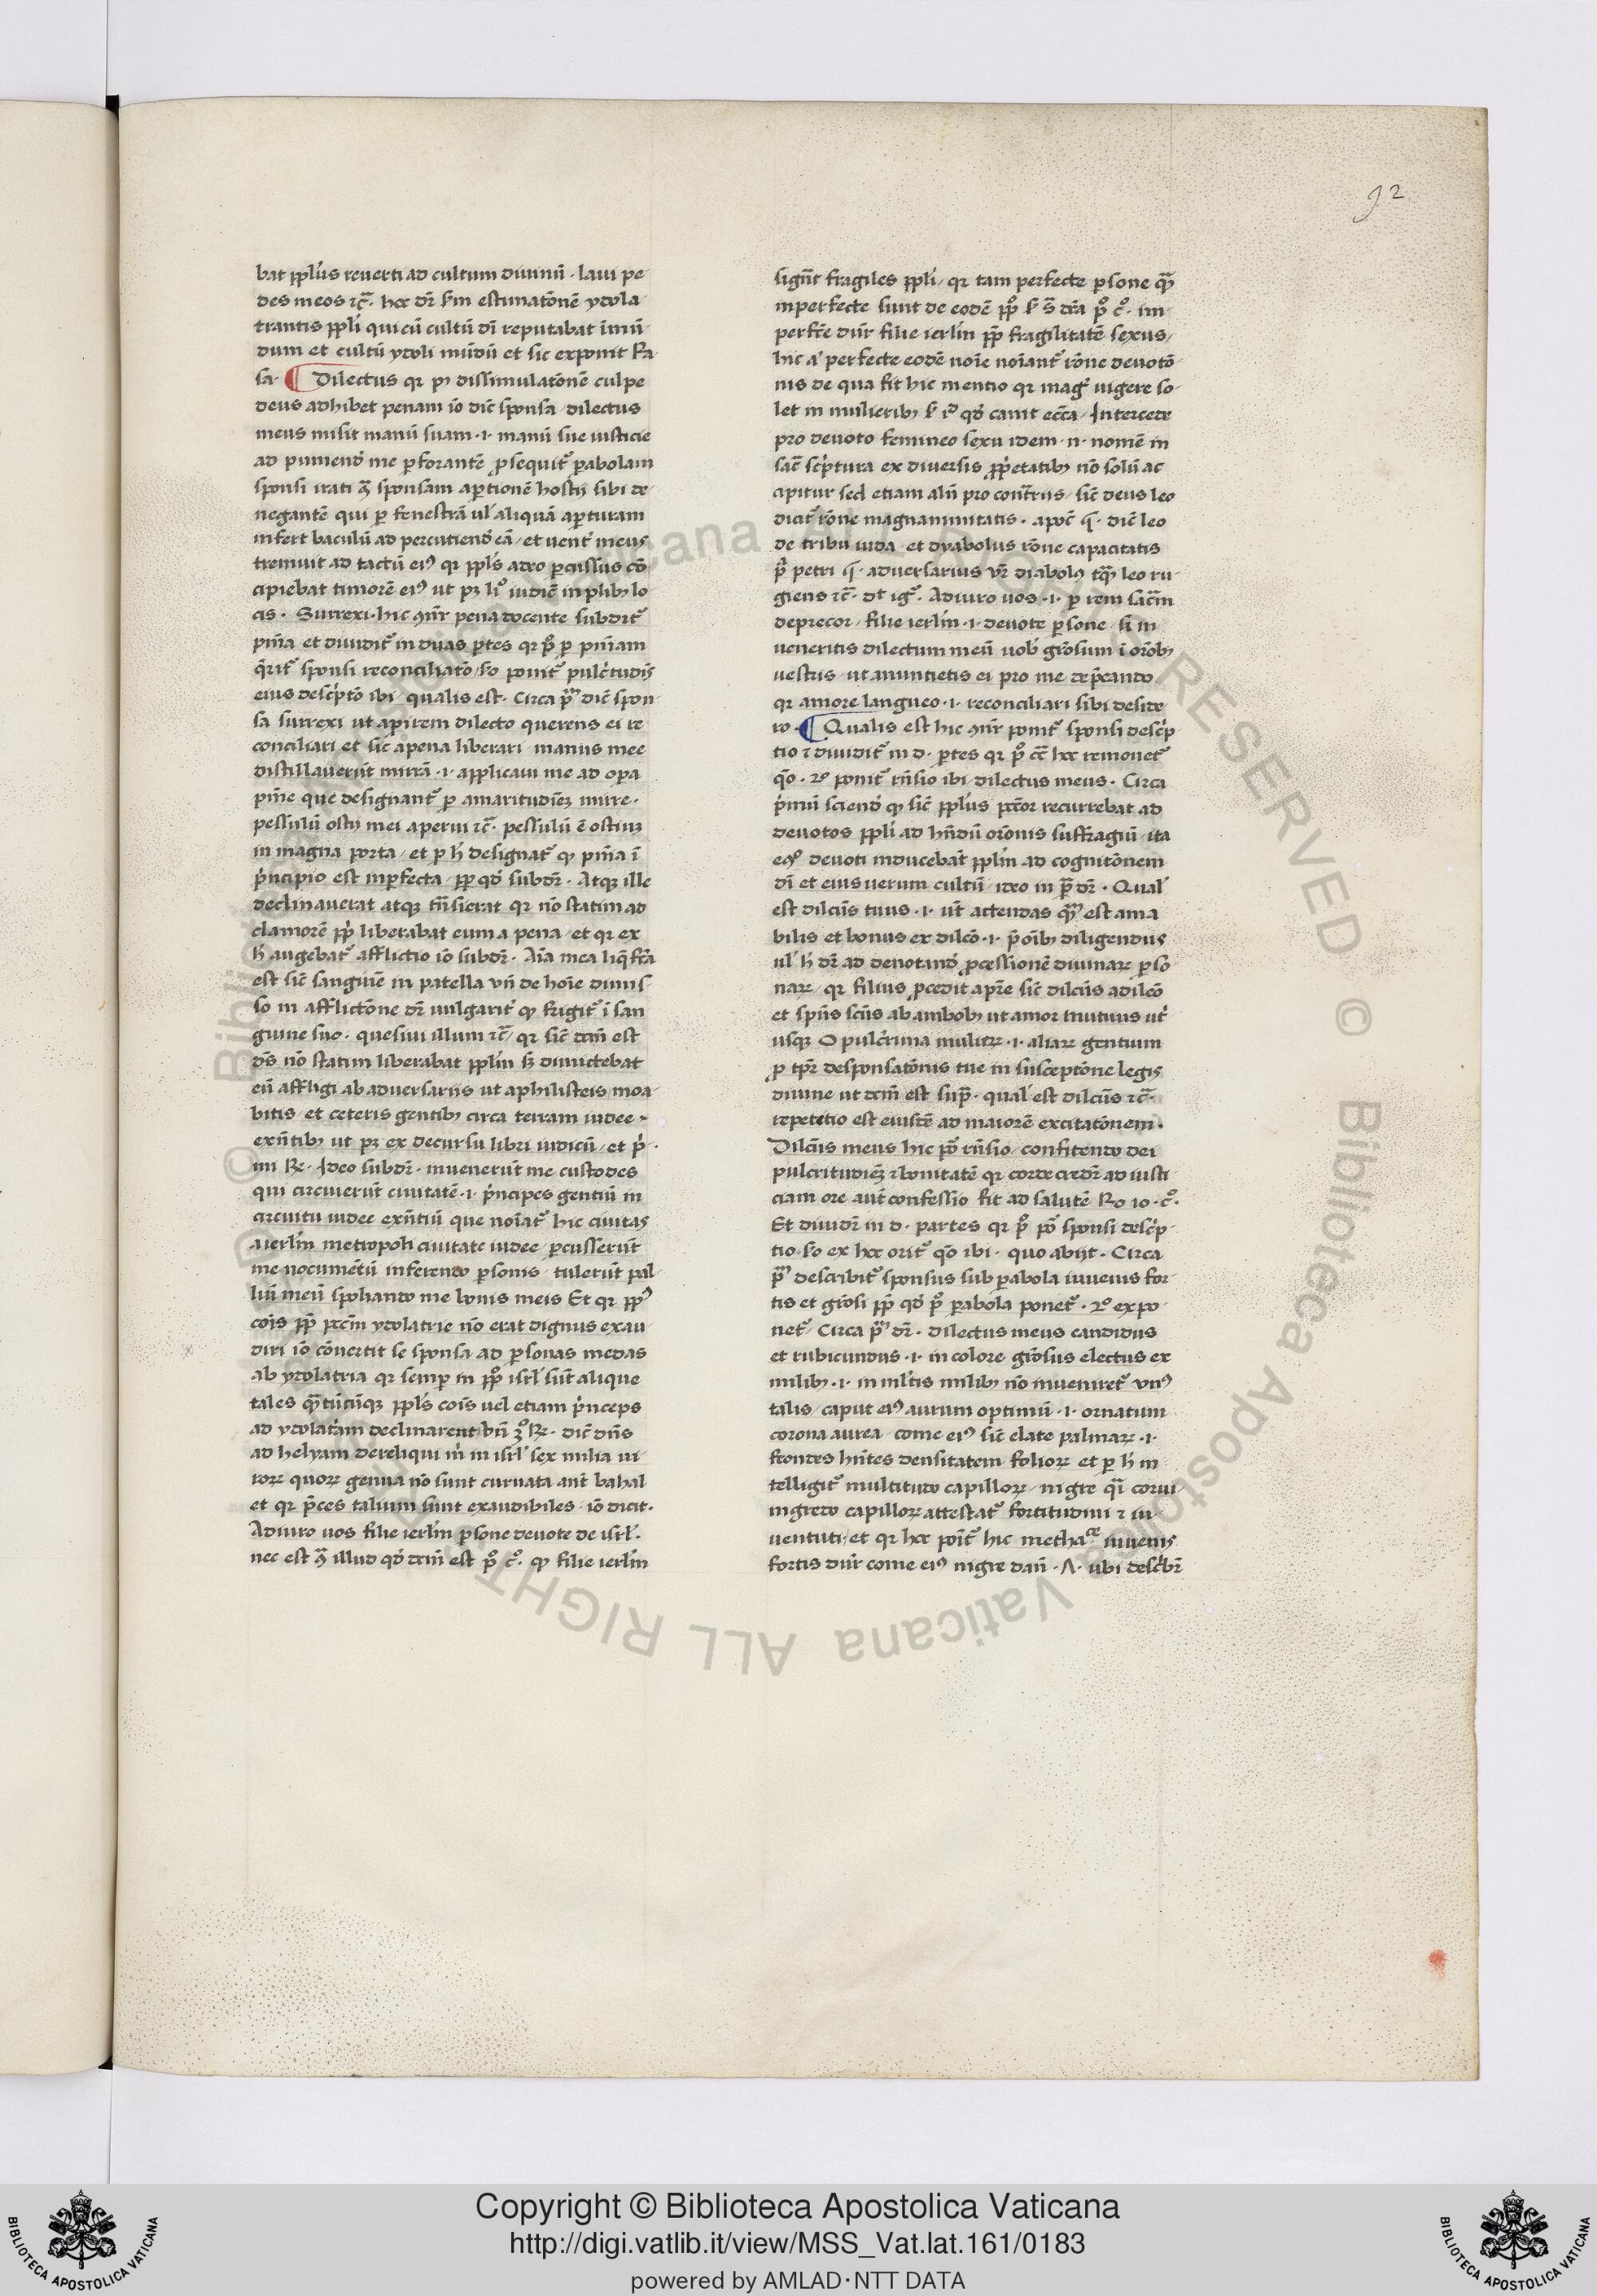 92
bat ppl'us reverti ad cultum diuinū · laui pe
des meos ⁊c̄· hoc dr̄ sm̄ estimatōnē ydola
trantis ppl'i qui cū cultū dī reputabat īmū
dum et cultū ydoli mūdū et sic exponit Ra
sa· ¶ Dilectus qr pꝰ dissimulatōnē culpe
deus adhibet penam iō dic̄ sponsa / dilectus
meus misit manū suam ·i· manū sue iusticie
ad puniend̄ me pforantē psequit᷑ pabolam
sponsi irati ꝯ̄ sponsam aptionē hostij sibi de
negantē qui p fenestrā ul' aliquā apturam
infert baculū ad percutiend̄ eā / et uent᷑ meus
tremuit ad tactū eiꝰ qr ppl's adeo pcussus cō
cipiebat timorē eiꝰ ut pꝫ liº iudic̄ in plibꝫ lo
cis · Surrexi · hic ꝯn̄r pena docente subdit᷑
pn̄ia et diuidit᷑ in duas ptes qr pº p pn̄iam
q̄rit᷑ sponsi reconciliatō / sº ponit᷑ pulc̄tudīs
eius desc̄ptō ibi / qualis est · Circa pm̄ dic̄ spon
sa surrexi ut apirem dilecto querens ei re
conciliari et sic apena liberari / manus mee
distillauerūt mirrā ·i· applicaui me ad opa
pn̄ie que designant᷑ p amaritudīeꝫ mirre ·
pessulū ostij mei aperui ⁊c̄· pessulū ē ostiuꝫ
in magna porta / et p h̄ designat᷑ ꝙ pn̄ia ī
p̄ncipio est inpfecta / pp qd̄ subdr̄ · Atqꝫ ille
declinauerat atqꝫ tn̄sierat qr nō statim ad
clamorē ppl'i liberabat eum a pena / et qr ex
h̄ augebat᷑ afflictio iō subdr̄ · Aīa mea liq̄fc̄a
est sic̄ sanguīe in patella vn̄ de hoīe dimis
so in afflictōne dr̄ uulgarit᷑ ꝙ frigit᷑ ī san
guine suo · quesiui illum ⁊c̄ / qr sic̄ dcm̄ est
dn̄s nō statim liberabat ppl'm sꝫ dimictebat
eū affligi ab aduersariis ut aphilisteis / moa
bitis / et ceteris gentibꝫ circa terram iudee ·
exn̄tibꝫ ut pꝫ ex decursu libri iudicū / et p̄ ·
mi Re · Ideo subdr̄ · inuenerūt me custodes
qui circuierūt ciuitatē ·i· p̄ncipes gentiū in
circuitu iudee exn̄tiū que noīat᷑ hic ciuitas
a ierl'm metropoli ciuitate iudee / pcusserūt
me nocumētū inferendo psonis / tulerūt pal
liū meū spoliando me bonis meis Et qr ppl's
cōis pp pcc̄m ydolatrie nō erat dignus exau
diri iō cōuertit se sponsa ad psonas medas
ab ydolatria qr semp in ppl'o isrl' sūt alique
tales q̄ntūcūqꝫ ppl's cōis uel etiam p̄nceps
ad ydolat̄am declinarent / vn̄ 3º Re · dic̄ dn̄s
ad helyam dereliqui m̄ in isrl' sex milia ui
rorꝝ quorꝝ genua nō sunt curuata ant̄ bahal
et qr p̄ces talium sunt exaudibiles · iō dicit ·
Adiuro uos filie ierl'm psone deuote de isrl' ·
nec est ꝯ̄ illud qd̄ dcm̄ est pº cº · ꝙ filie ierl'm
sign̄t fragiles ppl'i / qr tam perfecte psone q̄m
inperfecte sunt de eodē ppl'o sꝫ s̄ dc̄a pº cº · im
perfc̄e dn̄r filie ierl'm pp fragilitatē sexus /
hic aͣ perfecte eodē noīe noīant᷑ rōne deuotō
nis de qua fit hic mentio qr magꝭ uigere so
let in mulieribꝫ sꝫ iº qd̄ canit ecc̄a / Intercede
pro deuoto femineo sexu idem · n · nomē in
sac̄ sc̄ptura ex diuersis ppetatibꝫ nō solū ac
cipitur sed etiam alū pro contr̄iis / sic̄ deus leo
dicit᷑ rōne magnanimitatis · apoc̄ q̄ · dic̄ leo
de tribu iuda / et dyabolus rōne capacitatis
p̄ petri q̄ · aduersarius vr̄ diabolꝰ tq̄m leo ru
giens ⁊c̄ · dt̄ igͥ᷑ · Adiuro uos ·i· p rem sac̄m
deprecor / filie ierl'm ·i· deuote psone / si in
ueneritis dilectum meū uob̄ grōsum ī orōibꝫ
uestris / ut anuntietis ei pro me dep̄cando /
qr amore langueo ·i· reconciliari sibi deside
ro · ¶ Qualis est hic ꝯn̄r ponit᷑ sponsi desc̄p
tio ⁊ diuidit᷑ in d · ptes qr pº cc̄ hoc remouet᷑
qō · 2º ponit᷑ rn̄sio ibi / dilectus meus · Circa
p̄mū sciend̄ ꝙ sic̄ ppl'us pcc̄or recurrebat ad
deuotos ppl'i ad hn̄dū orōnis suffragiū / ita
eqº deuoti inducebāt ppl'm ad cognitōnem
dī et eius uerum cultū / ideo in p̄ dr̄ · Qual'
est dilc̄us tuus ·i· ut̄ attendas q̄m est ama
bilis et bonus ex dilc̄o ·i· p̄ oīibꝫ diligendus
ul' h̄ dr̄ ad denotand̄ pcessionē diuinarꝝ pso
narꝝ / qr filius pcedit apr̄e sic̄ dilc̄us adilc̄o
et spūs sc̄us ab ambobꝫ ut amor mutuus ut̄
usqꝫ O pulc̄rima mulierꝝ ·i· aliarꝝ gentium
p tpr̄ desponsatōnis tue in susceptōne legis
diuine ut dcm̄ est sup̄ · qual' est dilc̄us ⁊c̄ ·
repetitio est eiusdē ad maiorē excitatōnem ·
Dilc̄us meus hic pōt᷑ rn̄sio / confitendo dei
pulcritudīeꝫ ⁊ bonitatē qr corde credr̄ ad iusti
ciam ore aut̄ confessio fit ad salutē Ro 10 · cº ·
Et diuidr̄ in d · partes qr pº pōt᷑ sponsi desc̄p
tio / sº ex hoc orit᷑ qō ibi · quo abijt · Circa
pm̄ describit᷑ sponsus sub pabola iuuenis for
tis et grōsi pp qd̄ pº pabola ponet᷑ · 2º expo
net᷑ / Circa pm̄ dr̄ · dilectus meus candidus
et rubicundus ·i· in colore grōsus electus ex
milibꝫ ·i· in ml'tis milibꝫ nō inueniret᷑ vnꝰ
talis / caput eiꝰ aurum optimū ·i· ornatum
corona aurea / come eiꝰ sic̄ elate palmarꝝ ·i·
frondes hn̄tes densitatem foliorꝝ et p h̄ in
telligit᷑ multitudo capillorꝝ / nigre q̄i corui /
nigredo capillorꝝ attestat᷑ fortitudini ⁊ iu
uentuti / et qr hoc poīt᷑ hic methaᶜᵉ iuuenis
fortis dn̄r come eiꝰ nigre dan̄ · Λ · ubi desc̄br̄
Copyright © Biblioteca Apostolica Vaticana
http://digi.vatlib.it/view/MSS_Vat.lat.161/0183
powered by AMLAD·NTT DATA
BIBLIOTECA APOSTOLICA VATICANA
BIBLIOTECA APOSTOLICA VATICANA